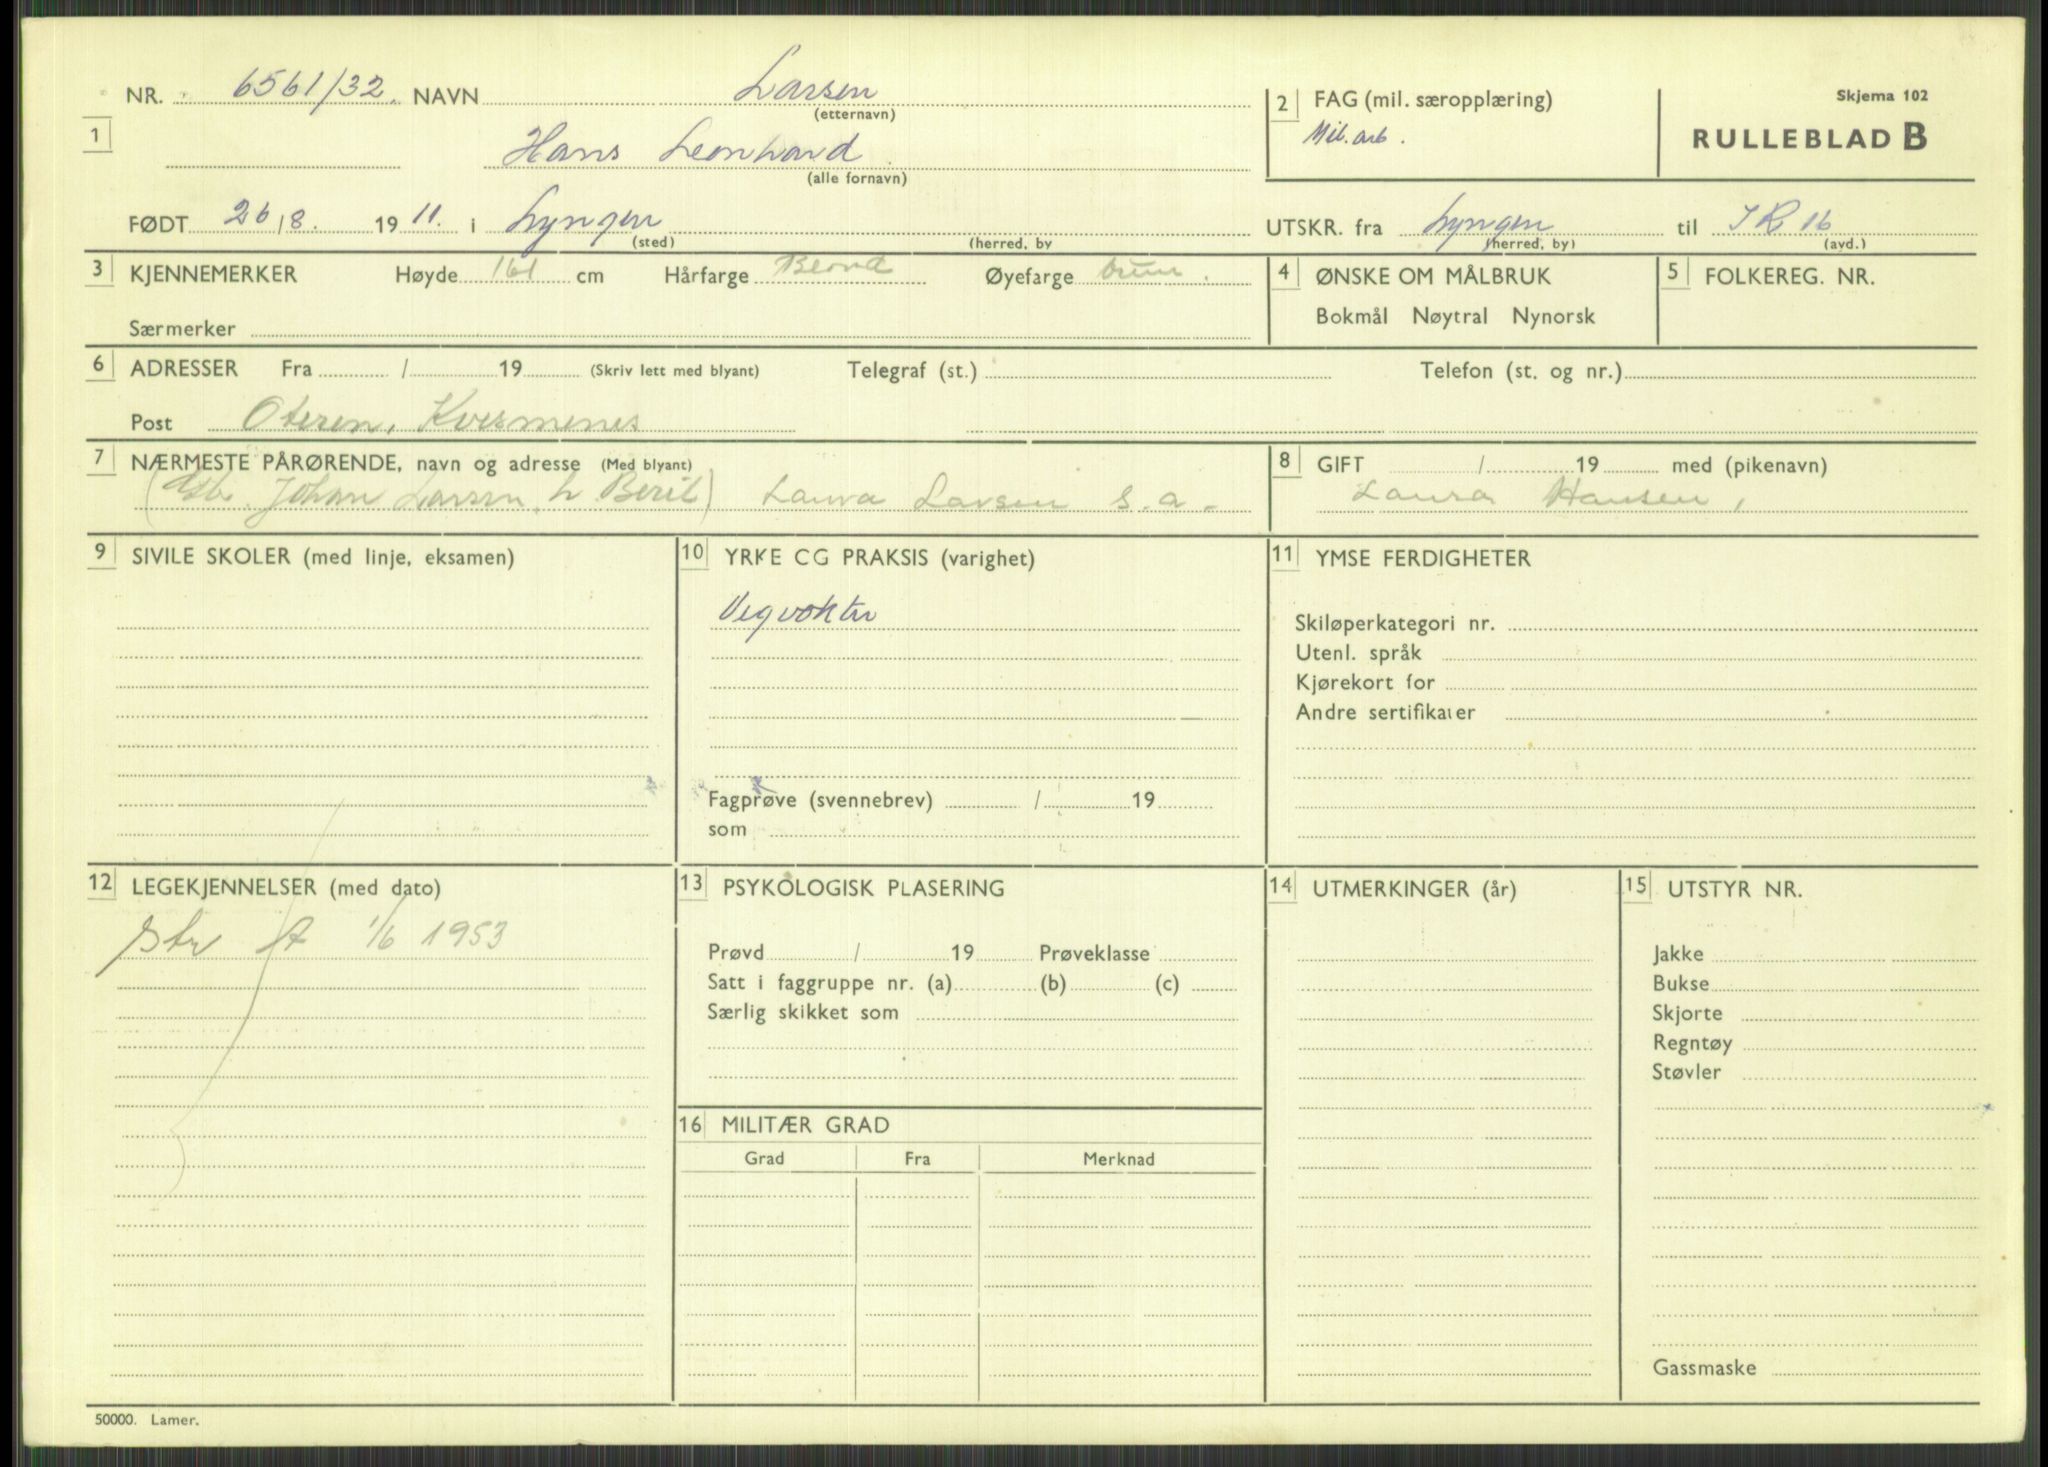 Skjema 102
RULLEBLAD B
1 NR. 6561/32. NAVN Larsen
(etternavn)
Hans Leonhard
(alle fornavn)
2 FAG (mil. særopplæring)
Mil. arb.
FØDT 26/8. 1911. i Lyngen
(sted) (herred, by
UTSKR. fra Lyngen til IR 16
(herred, by) (avd.)
3 KJENNEMERKER Høyde 161 cm Hårfarge Blond Øyefarge brun.
Særmerker
4 ØNSKE OM MÅLBRUK
Bokmål Nøytral Nynorsk
5 FOLKEREG. NR.
6 ADRESSER Fra / 19 (Skriv lett med blyant) Telegraf (st.) Telefon (st. og nr.)
Post Oteren, Kvesmenes
7 NÆRMESTE PÅRØRENDE, navn og adresse (Med blyant)
Johan Larsen Laura Larsen s.a.
8 GIFT / 19 med (pikenavn)
Laura Hansen,
9 SIVILE SKOLER (med linje, eksamen)
10 YRKE CG PRAKSIS (varighet)
Vegvokter
Fagprøve (svennebrev) / 19
som
11 YMSE FERDIGHETER
Skiløperkategori nr.
Utenl. språk
Kjørekort for
Andre sertifikater
12 LEGEKJENNELSER (med dato)
Str A 1/6 1953
13 PSYKOLOGISK PLASERING
Prøvd / 19 Prøveklasse
Satt i faggruppe nr. (a) (b) (c)
Særlig skikket som
14 UTMERKINGER (år)
15 UTSTYR NR.
Jakke
Bukse
Skjorte
Regntøy
Støvler
Gassmaske
16 MILITÆR GRAD
Grad Fra Merknad
50000. Lamer.